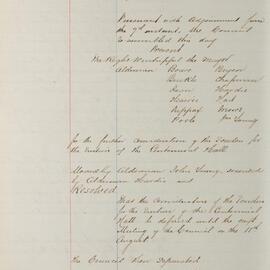 Pursuant with Adjournment from
the 7th instant, the Council
reassembled this day
Present
The Right Worshipful the Mayor
Aldermen Bown
Burdekin Chapman
Dean Hardie
Hart
Moore
Poole Wm Young
for the further consideration of the Tenders for
the erection of the Centennial Hall
Moved by Alderman John Young, seconded
by Alderman Hardie and
Resolved
That the consideration of the Tenders
for the erection of the Centennial
Hall be deferred until the next
Meeting of the Council on the 15th
August
The Council then Separated